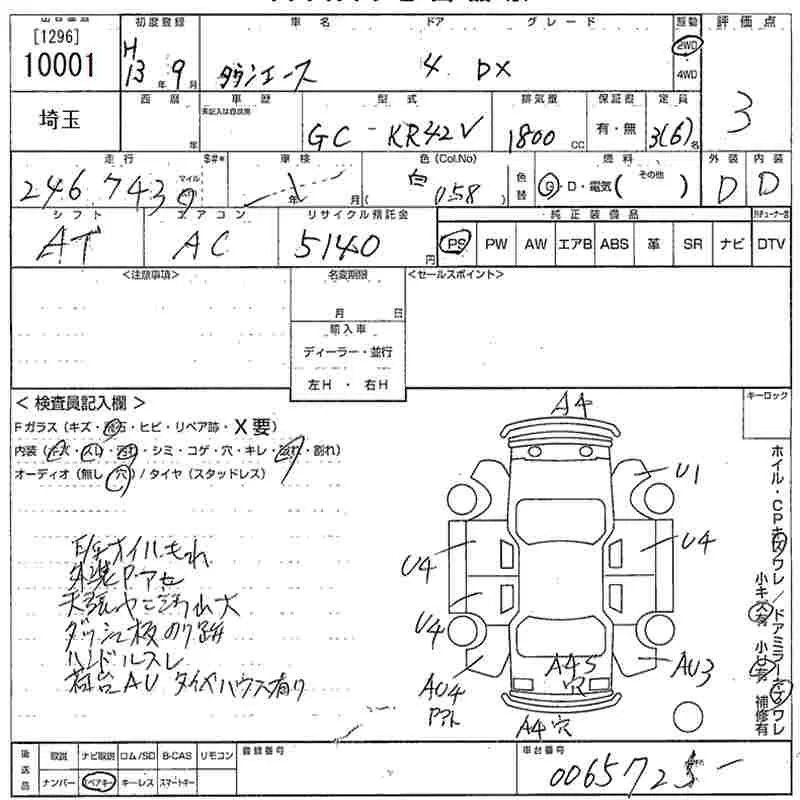 [1296]
10001
初度登録
車名
ドア
グレード
駆動
評価点
H
13年 9月
タウンエース
4
DX
2WD
4WD
3
埼玉
西暦
年
車歴
型式
GC-KR42V
排気量
1800 CC
保証書
有・無
定員
3(6)名
走行
246743
マイル
$#*
車検
年
月
色(Col.No)
白
058
色替
燃料
G・D・電気( その他 )
外装
D
内装
D
シフト
AT
エアコン
AC
リサイクル預託金
5140円
純正装備品
PS
PW
AW
エアB
ABS
革
SR
ナビ
DTV
<注意事項>
名変期限
月 日
輸入車
ディーラー・並行
左H・右H
<セールスポイント>
キーロック
<検査員記入欄>
Fガラス(キズ・飛石・ヒビ・リペア跡・X要)
内装(キズ・スレ・汚れ・シミ・コゲ・穴・キレ・破れ・割れ)
オーディオ(無し・穴)/タイヤ(スタッドレス)
E/G オイルもれ
外装P.アセ
天張ヤニ汚れ大
ダッシュ板のり跡
ハンドルスレ
荷台AU タイヤハウス有り
A4
U1
U4
U4
U4
AU3
AU4
A4S
穴
A4穴
ホイル・CPキズワレ/ドアミラーキズワレ
小キズ有 小凹有 補修有
後送品
取説
ナビ取説
ロム/SD
B-CAS
リモコン
ナンバー
スペアキー
キーレス
スマートキー
登録番号
車台番号